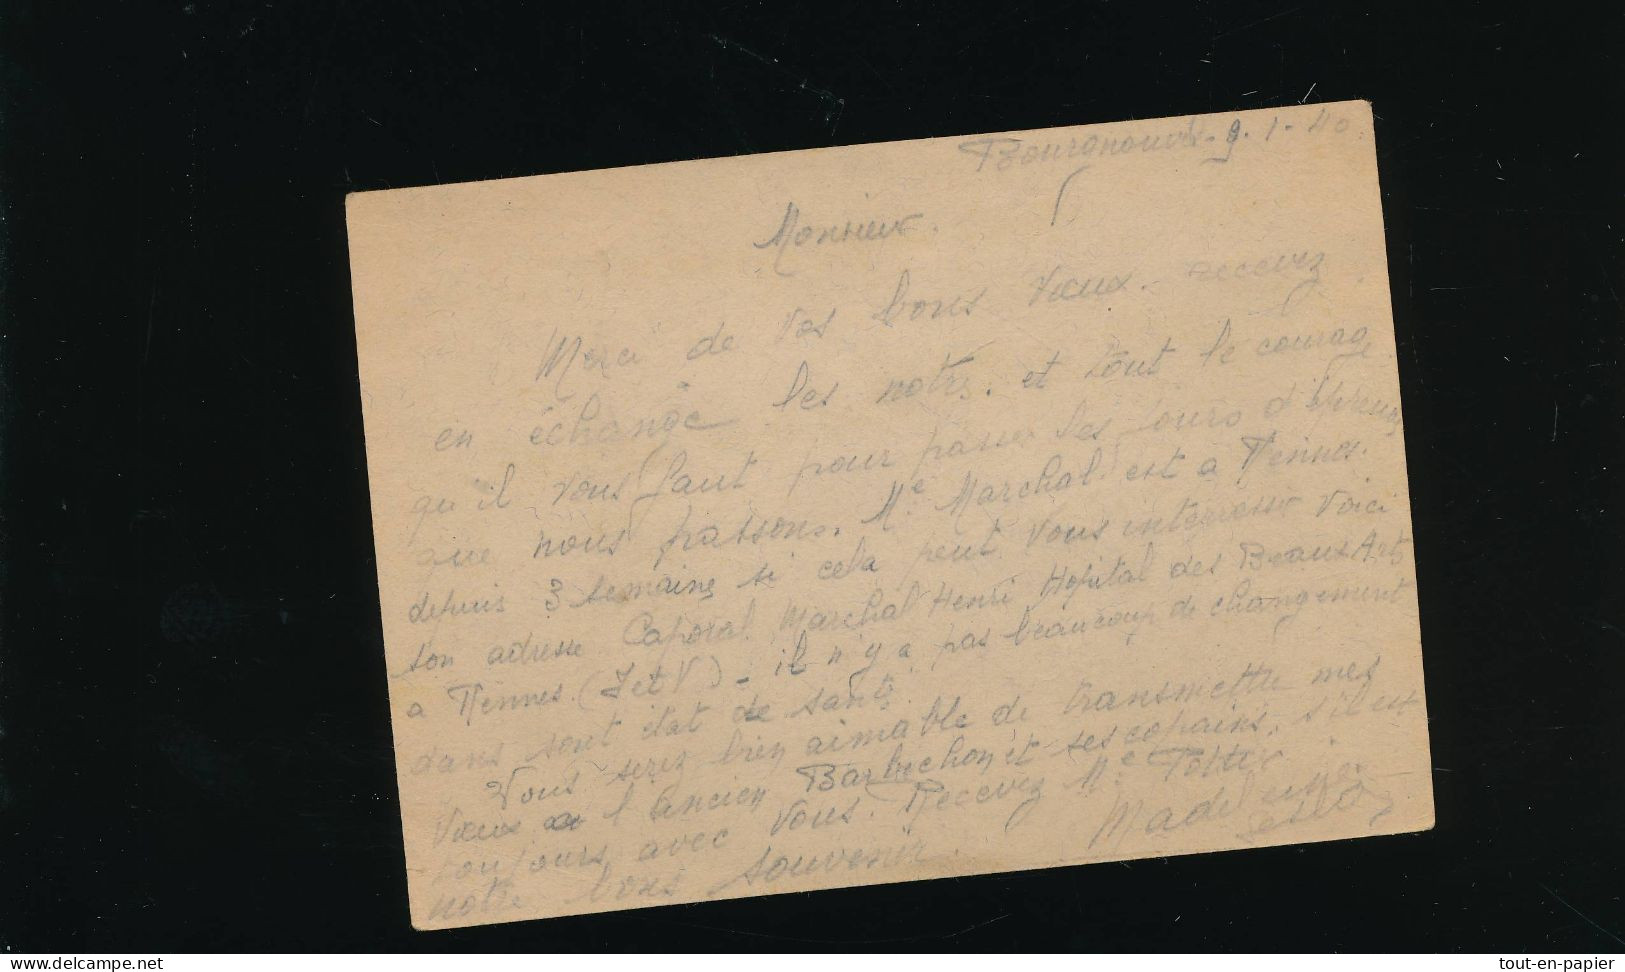 Bourgnouveau - 9.1-40
Monsieur.
Merci de vos bons vœux. recevez
en échange les notres. et tout le courage
qu'il vous faut pour passer les jours d'épreuves
que nous passons. Mr Marchal est a Rennes.
depuis 3 semaines si cela peut vous interresser voici
son adresse Caporal Marchal Henri Hopital des Beaux Arts
a Rennes. (I et V) - il n'y a pas beaucoup de changement
dans sont état de santé
Vous serez bien aimable de transmettre mes
vœux a l'ancien Barbechon et ses copains. s'il est
toujours avec vous. Recevez Mr
notre bons souvenir. Madeleine
www.delcampe.net
tout-en-papier